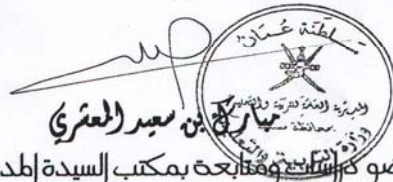 سلطنة عُمان
المديرية العامة للتربية والتعليم
بمحافظة مسقط
وزارة التربية والتعليم
مبارك بن سعيد المعشري
دراسات ومتابعة بمكتب السيدة